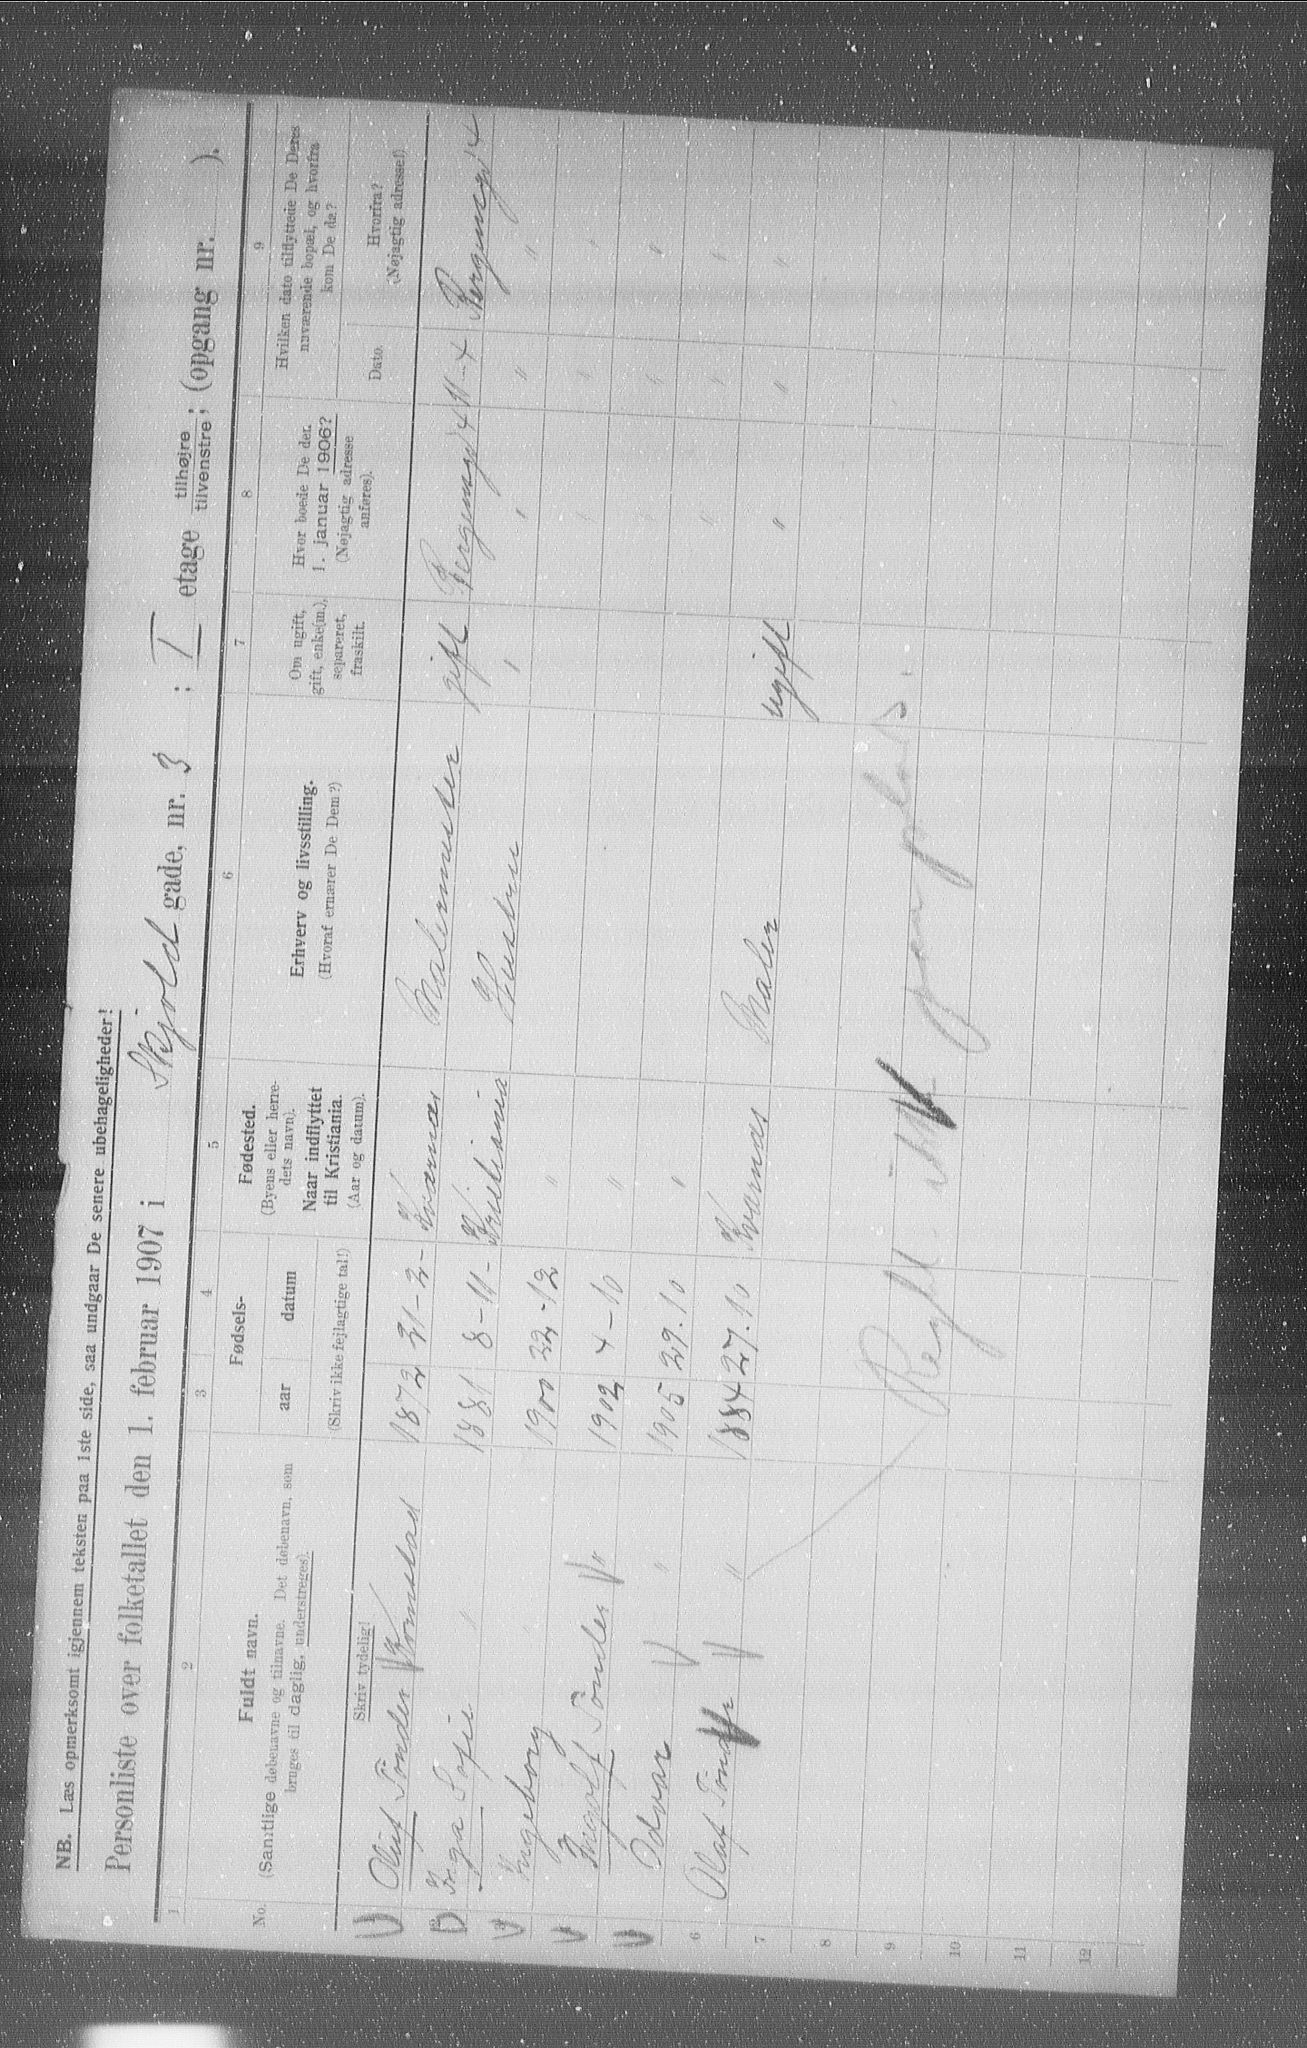 NB. Læs opmerksomt igjennem teksten paa 1ste side, saa undgaar De senere ubehageligheder!
Personliste over folketallet den 1. februar 1907 i Skjold gade, nr. 3 ; I etage tilhøjre tilvenstre; (opgang nr. ).
1 2 3 4 5 6 7 8 9
No. Fuldt navn. (Samtlige døbenavne og tilnavne. Det døbenavn, som bruges til daglig, understreges). Skriv tydelig!
Fødsels- aar datum (Skriv ikke fejlagtige tal!)
Fødested. (Byens eller herredets navn). Naar indflyttet til Kristiania. (Aar og datum).
Erhverv og livsstilling. (Hvoraf ernærer De Dem?)
Om ugift, gift, enke(m.), separeret, fraskilt.
Hvor boede De den 1. januar 1906? (Nøjagtig adresse anføres).
Hvilken dato tilflyttede De Deres nuværende bopæl, og hvorfra kom De da?
Dato. Hvorfra? (Nøjagtig adresse!)
Oluf Tönder Komstad 1872 21-2- Kværnes Malermester gift
Inga Sofie " 1881 8-11- Kristiania Hustru " " " "
Ingeborg 1900 22-12 " " " "
Ingolf Tönder " 1902 4-10 " " " "
Odvar " 1905 29.10 " " " "
6 Olaf " 1884 27.10 Kvernes Maler ugift " " "
7
8
9
10
11
12